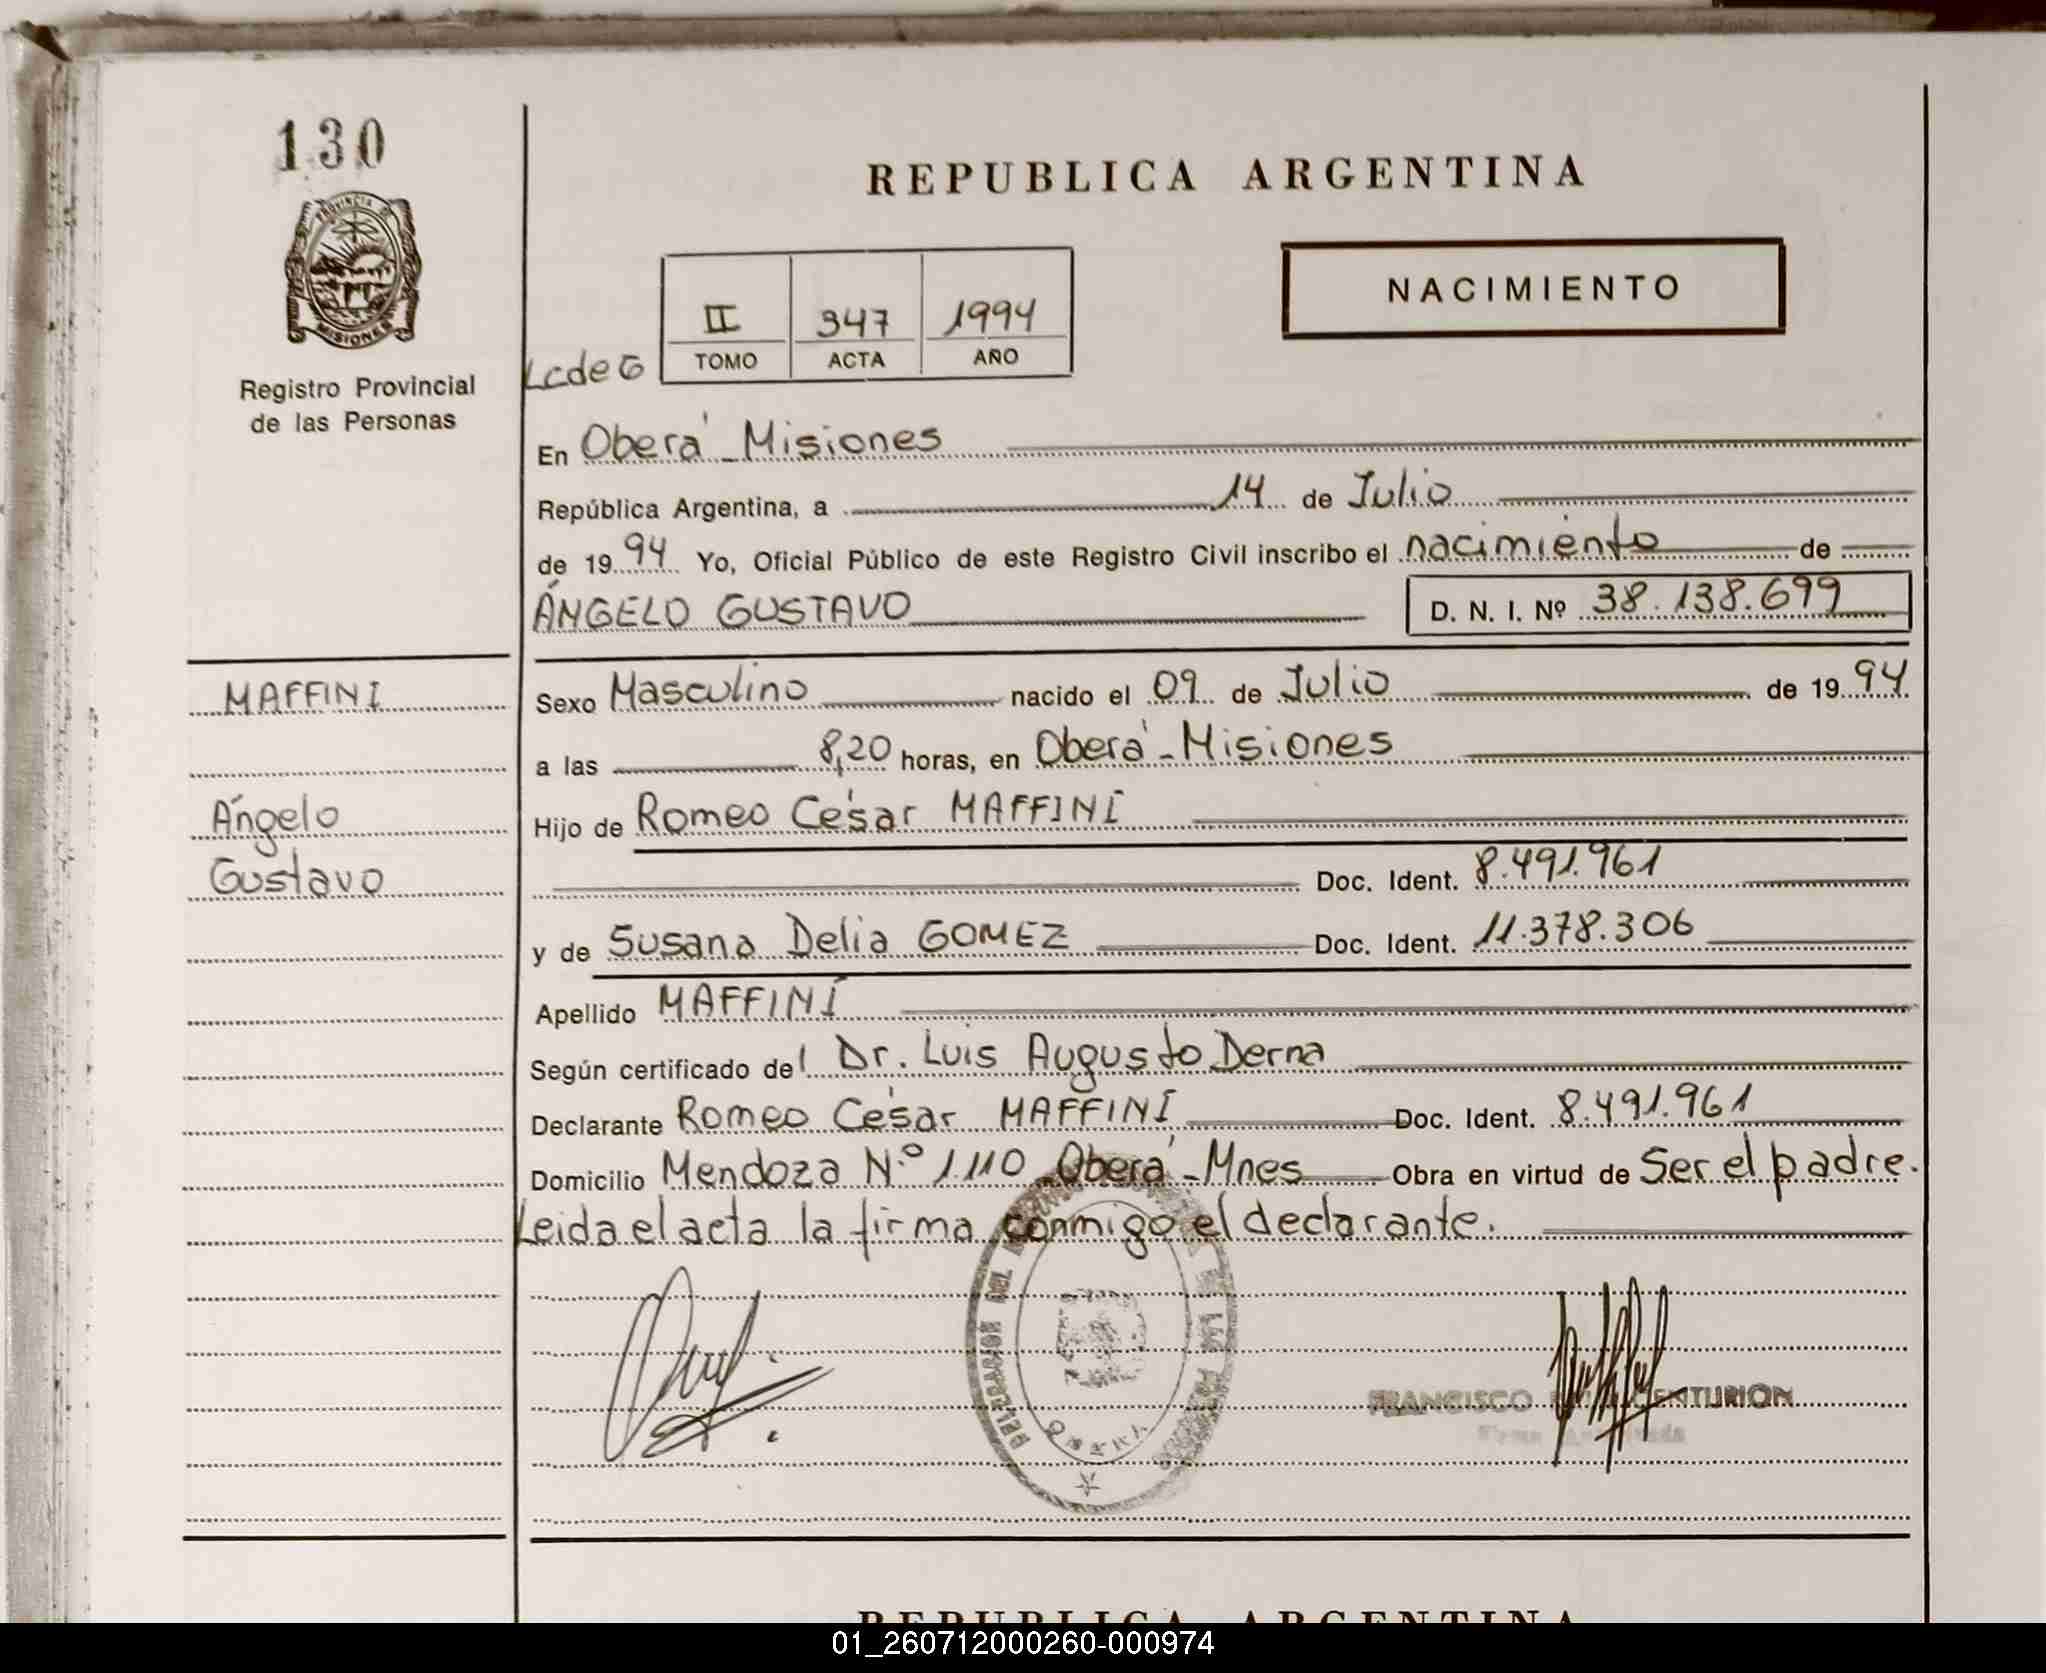 130
PROVINCIA DE
MISIONES
Registro Provincial
de las Personas
REPUBLICA ARGENTINA
NACIMIENTO
II 347 1994
TOMO ACTA AÑO
LcdeG
En Oberá - Misiones
República Argentina, a 14 de Julio
de 1994 Yo, Oficial Público de este Registro Civil inscribo el nacimiento de
ÁNGELO GUSTAVO D. N. I. Nº 38.138.699
MAFFINI
Sexo Masculino nacido el 09 de Julio de 1994
a las 8,20 horas, en Oberá - Misiones
Ángelo
Gustavo
Hijo de Romeo César MAFFINI
Doc. Ident. 8.491.961
y de Susana Delia GOMEZ Doc. Ident. 11.378.306
Apellido MAFFINI
Según certificado del Dr. Luis Augusto Derna
Declarante Romeo César MAFFINI Doc. Ident. 8.491.961
Domicilio Mendoza N.º 1.110 - Oberá - Mnes Obra en virtud de Ser el padre.
Leida el acta la firma conmigo el declarante.
DELEGACION DEL DE LAS
OBERA
FRANCISCO CENTURION
Firma
REPUBLICA ARGENTINA
01_260712000260-000974